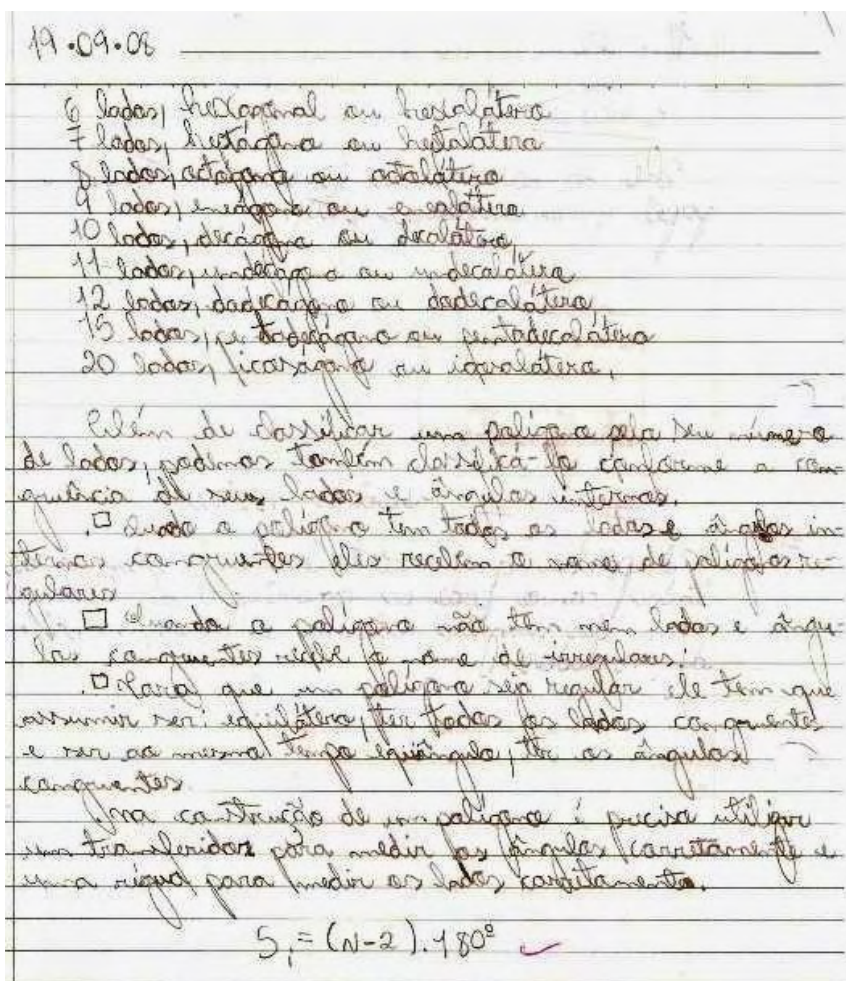 19.09.08
6 lados, hexagonal ou hexalátero
7 lados, heptágono ou heptalátero
8 lados, octógono ou octolátero
9 lados, eneágono ou enealátero
10 lados, decágono ou decalátero,
11 lados, undecágono ou undecalátero
12 lados, dodecágono ou dodecalátero,
15 lados, pentadecágono ou pentadecalátero
20 lados, icoságono ou icosalátero,
Além de classificar um polígono pelo seu número
de lados, podemos também classificá-lo conforme a con-
gruência de seus lados e ângulos internos.
. □ Quando o polígono tem todos os lados e ângulos in-
ternos congruentes eles recebem o nome, de polígonos re-
gulares
□ Quando o polígono não tem nem lados e ângu-
los congruentes recebe o nome de irregulares.
. □ Para que um polígono seja regular ele tem que
assumir ser: equilátero, ter todos os lados congruentes
e ser ao mesmo tempo equiângulo, ter os ângulos
congruentes
Na construção de um polígono é preciso utilizar
um transferidor para medir os ângulos corretamente e
uma régua para medir os lados corretamente.
Sᵢ = (N-2).180º